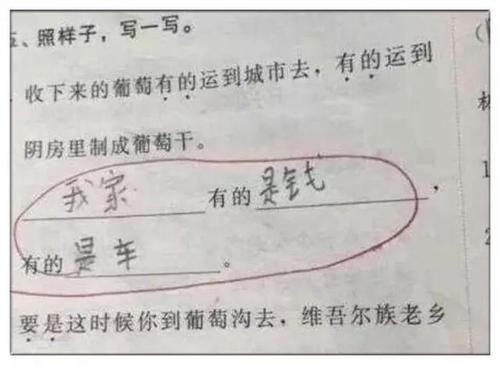 五、照样子，写一写。
收下来的葡萄有的运到城市去，有的运到
阴房里制成葡萄干。
我家有的是钱，
有的是车。
要是这时候你到葡萄沟去，维吾尔族老乡